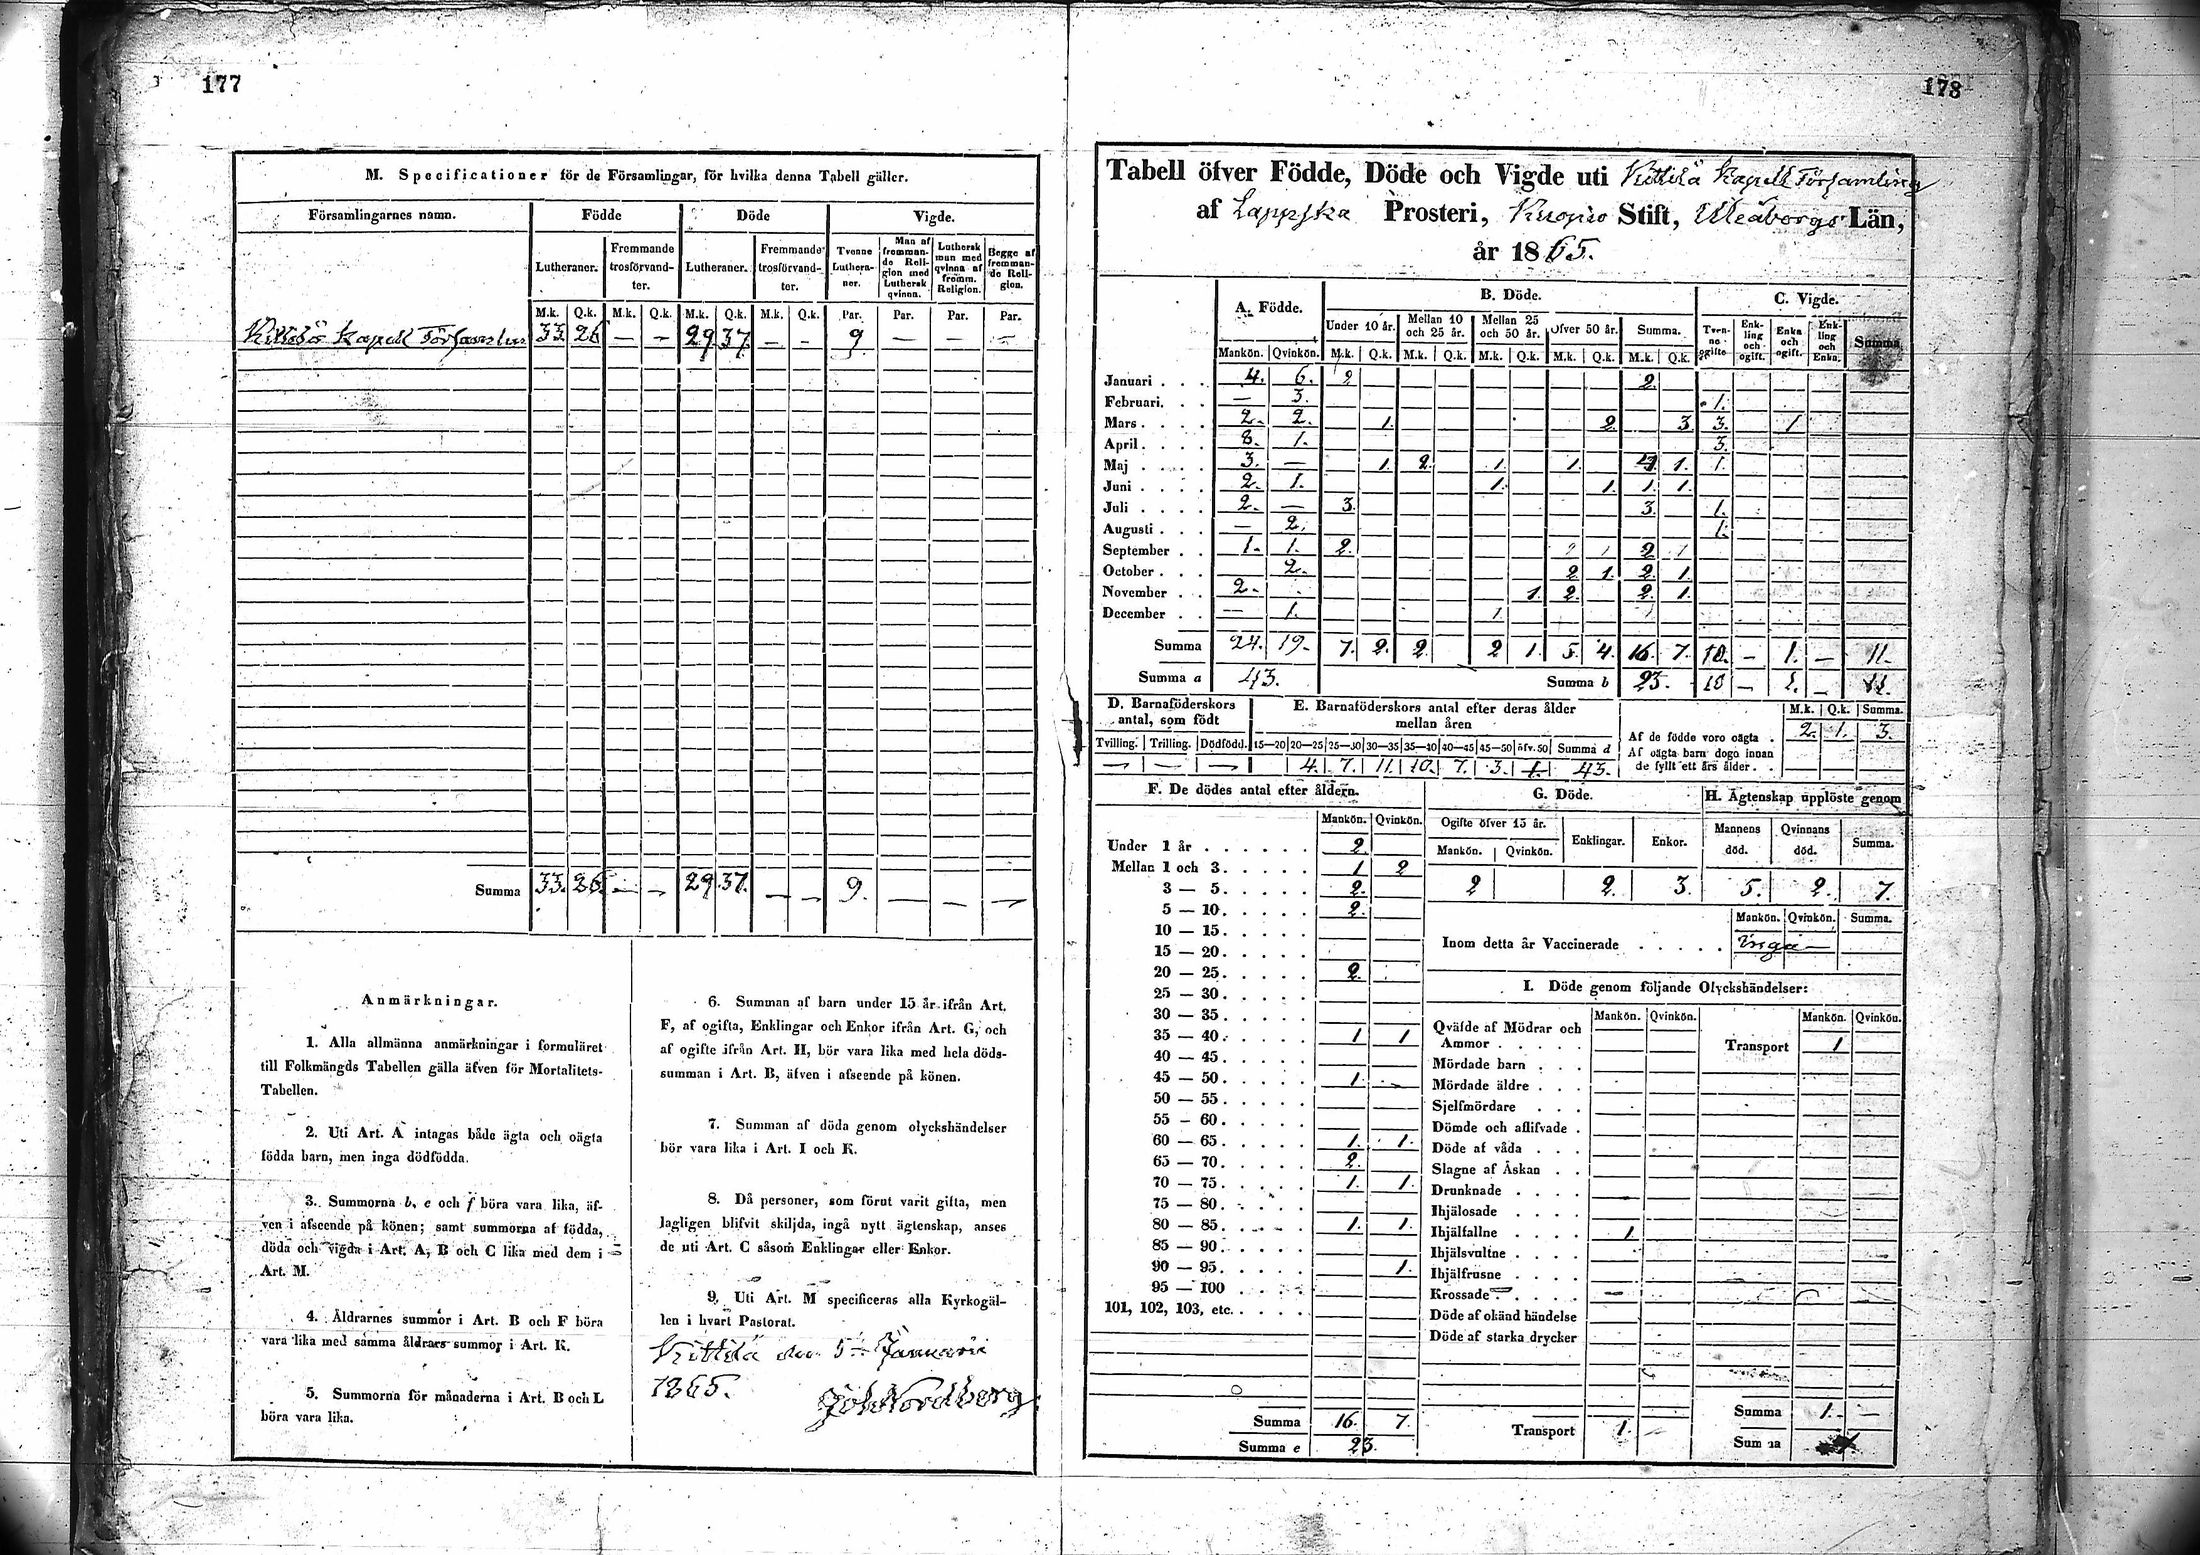 177
M. Specificationer för de Församlingar, för hvilka denna Tabell gäller.
Församlingarnes namn. Födde Döde Vigde.
Lutheraner. Fremmande trosförvandter. Lutheraner. Fremmande trosförvandter. Tvenne Lutheraner. Man af fremmande Religion med Luthersk qvinna. Luthersk man med qvinna af fremm. Religion. Begge af fremmande Religion.
M.k. Q.k. M.k. Q.k. M.k. Q.k. M.k. Q.k. Par. Par. Par. Par.
Kittilä Kapell Församlin 33 26 — — 29 37. — — 9 — — —
Summa 33. 26. — — 29 37. — — 9. — — —
Anmärkningar.
1. Alla allmänna anmärkningar i formuläret
till Folkmängds Tabellen gälla äfven för Mortalitets-
Tabellen.
2. Uti Art. A intagas både ägta och oägta
födda barn, men inga dödfödda.
3. Summorna b, e och f böra vara lika, äf-
ven i afseende på könen; samt summorna af födda,
döda och vigda i Art. A, B och C lika med dem i
Art. M.
4. Åldrarnes summor i Art. B och F böra
vara lika med samma åldrars summor i Art. K.
5. Summorna för månaderna i Art. B och L
böra vara lika.
6. Summan af barn under 15 år ifrån Art.
F, af ogifta, Enklingar och Enkor ifrån Art. G, och
af ogifte ifrån Art. H, bör vara lika med hela döds-
summan i Art. B, äfven i afseende på könen.
7. Summan af döda genom olyckshändelser
bör vara lika i Art. I och K.
8. Då personer, som förut varit gifta, men
lagligen blifvit skiljda, ingå nytt ägtenskap, anses
de uti Art. C såsom Enklingar eller Enkor.
9. Uti Art. M specificeras alla Kyrkogäl-
len i hvart Pastorat.
Kittilä den 5 Januarii
1865.
Joh Nordberg
178
Tabell öfver Födde, Döde och Vigde uti Kittilä Kapell Församling
af Lappska Prosteri, Kuopio Stift, Uleåborgs Län,
år 1865.
A. Födde. B. Döde. C. Vigde.
Under 10 år. Mellan 10 och 25 år. Mellan 25 och 50 år. Öfver 50 år. Summa. Tvenne ogifte Enkling och ogift. Enka och ogift. Enkling och Enka. Summa
Mankön. Qvinkön. M.k. Q.k. M.k. Q.k. M.k. Q.k. M.k. Q.k. M.k. Q.k.
Januari . . . 4. 6. 2 2.
Februari. . . — 3. 1.
Mars . . . . 2. 2. 1. 2. 3. 3. 1
April . . . . 8. 1. 3.
Maj . . . . 3. — 1. 2. 1. 1. 4 1. 1.
Juni . . . . 2. 1. 1. 1. 1. 1.
Juli . . . . 2. — 3. 3. 1.
Augusti . . . — 2. 1.
September . . 1. 1. 2. 2
October . . . 2. 2. 1. 2. 1.
November . . 2. 1. 2. 2. 1.
December . . — 1. 1.
Summa 24. 19. 7. 2. 2. 2 1. 5. 4. 16. 7. 10. — 1. — 11.
Summa a 43. Summa b 23. 10 — 1. — 11.
D. Barnaföderskors antal, som födt
E. Barnaföderskors antal efter deras ålder mellan åren
Tvilling. Trilling. Dödfödd. 15—20 20—25 25—30 30—35 35—40 40—45 45—50 öfv. 50 Summa d
— — — 4. 7. 11. 10. 7. 3. 1. 43.
M.k. Q.k. Summa.
Af de födde voro oägta . 2. 1. 3.
Af oägta barn dogo innan
de fyllt ett års ålder . .
F. De dödes antal efter åldern.
Mankön. Qvinkön.
Under 1 år . . . . . . 2.
Mellan 1 och 3. . . . . 1 2
3 — 5. . . . . 2.
5 — 10. . . . . 2.
10 — 15. . . . .
15 — 20. . . . .
20 — 25. . . . . 2.
25 — 30. . . . .
30 — 35. . . . .
35 — 40. . . . . 1 1
40 — 45. . . . .
45 — 50. . . . . 1.
50 — 55. . . . .
55 — 60. . . . .
60 — 65. . . . . 1. 1.
65 — 70. . . . . 2.
70 — 75. . . . . 1. 1.
75 — 80. . . . .
80 — 85. . . . . 1. 1.
85 — 90. . . . .
90 — 95. . . . . 1.
95 — 100 . . . .
101, 102, 103, etc. . . . .
Summa 16. 7.
Summa e 23.
G. Döde.
Ogifte öfver 15 år. Enklingar. Enkor.
Mankön. Qvinkön.
2 2. 3.
H. Ägtenskap upplöste genom
Mannens död. Qvinnans död. Summa.
5. 2. 7.
Mankön. Qvinkön. Summa.
Inom detta år Vaccinerade . . . . . inga —
I. Döde genom följande Olyckshändelser:
Mankön. Qvinkön. Mankön. Qvinkön.
Qväfde af Mödrar och
Ammor . . . . . Transport 1
Mördade barn . . .
Mördade äldre . . .
Sjelfmördare . . .
Dömde och aflifvade .
Döde af våda . . .
Slagne af Åskan . .
Drunknade . . . .
Ihjälosade . . . .
Ihjälfallne . . . . 1.
Ihjälsvultne . . . .
Ihjälfrusne . . . .
Krossade . . . . .
Döde af okänd händelse
Döde af starka drycker
Summa 1. —
Transport 1. —
Summa